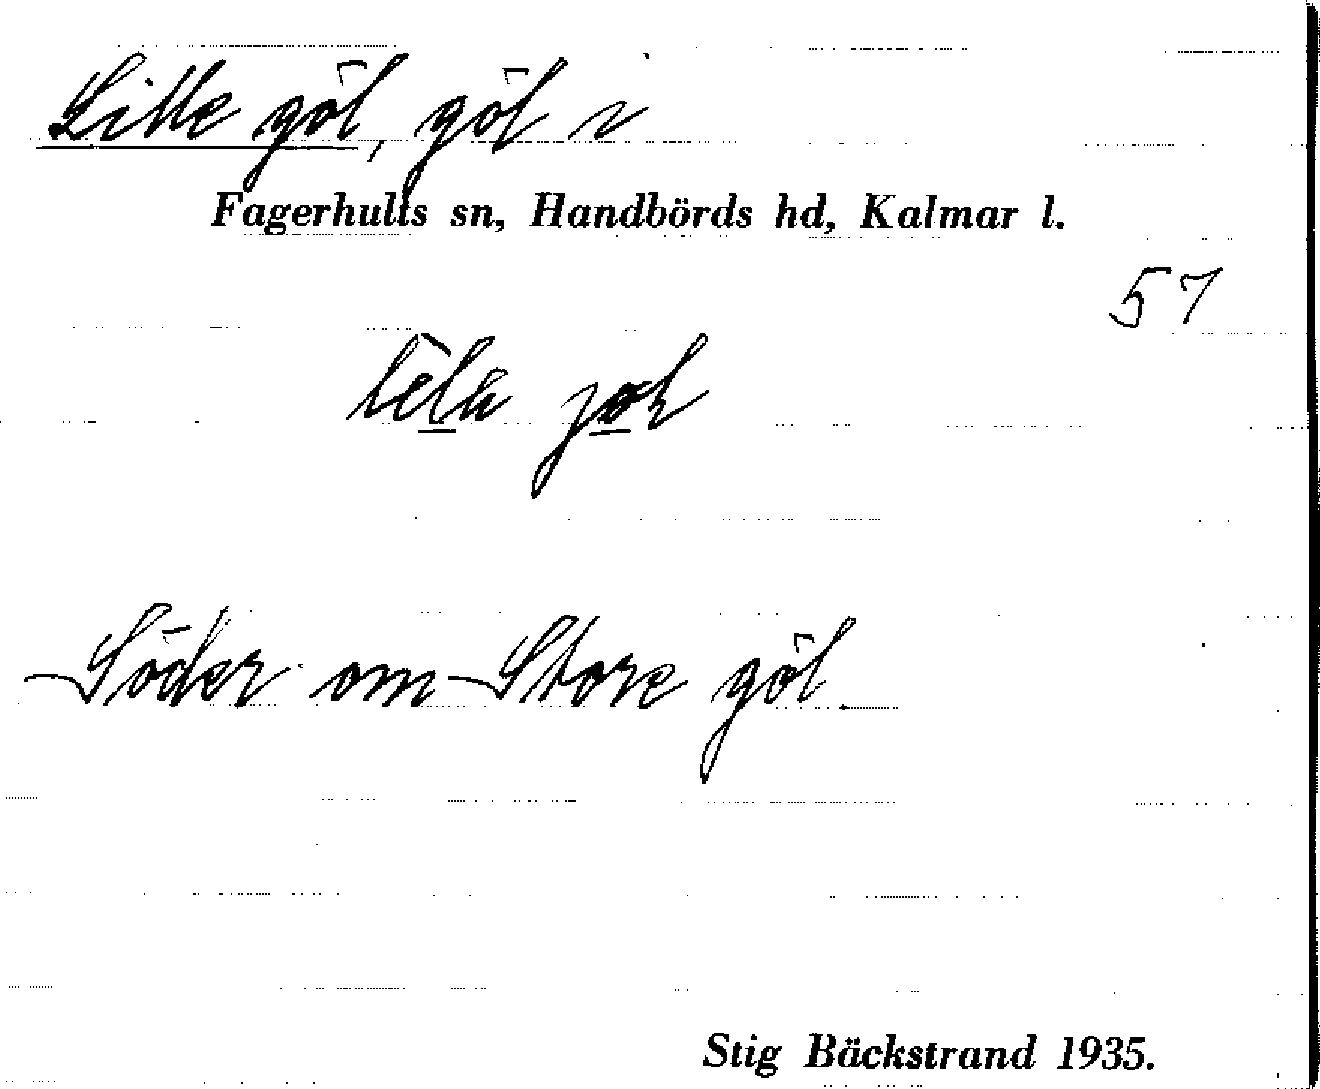 Lille göl, göl i
Fagerhults sn, Handbörds hd, Kalmar l.
57
Söder om Store göl.
Stig Bäckstrand 1935.